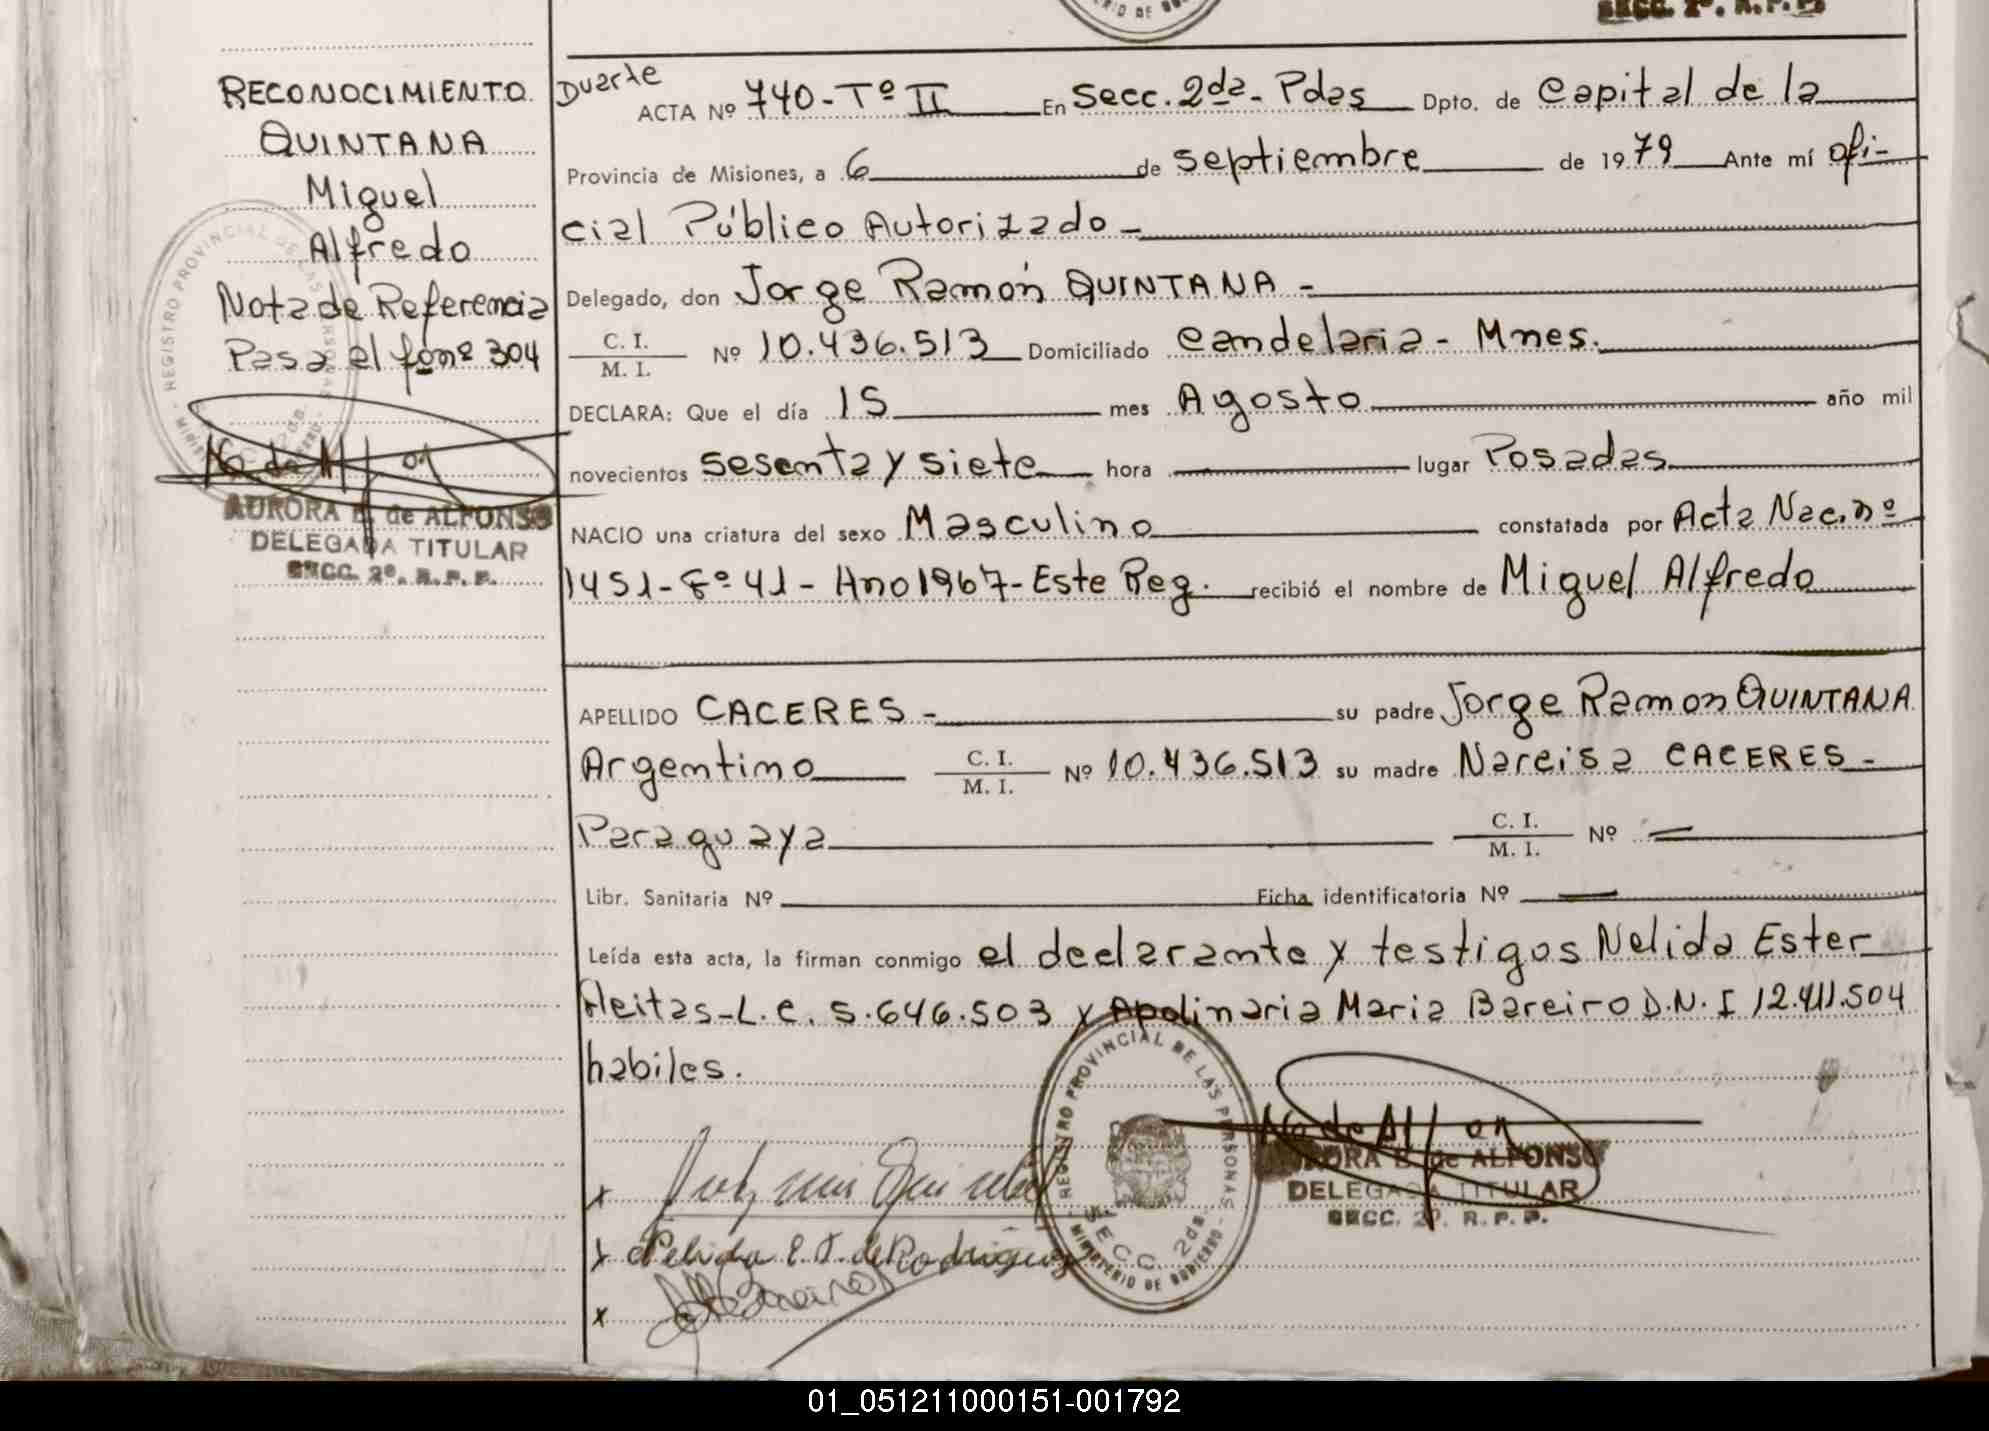 SECC. 2º. R.P.P.
RECONOCIMIENTO
QUINTANA
Miguel
Alfredo
Nota de Referencia
Pasa el fono 304
AURORA E. de ALFONSO
DELEGADA TITULAR
SECC. 2º. R. P. P.
Duarte
ACTA Nº 740-Tº II En Secc. 2da- Pdas Dpto. de Capital de la
Provincia de Misiones, a 6 de septiembre de 1979 Ante mí ofi-
cial Público Autorizado -
Delegado, don Jorge Ramón QUINTANA -
C. I.
M. I. Nº 10.436.513 Domiciliado Candelaria - Mnes.
DECLARA: Que el día 15 mes Agosto año mil
novecientos sesenta y siete hora lugar Posadas
NACIO una criatura del sexo Masculino constatada por Acta Nac. nº
1451-Fº 41 - Año 1967-Este Reg. recibió el nombre de Miguel Alfredo
APELLIDO CACERES - su padre Jorge Ramon QUINTANA
Argentino C. I. M. I. Nº 10.436.513 su madre Narcisa CACERES -
Paraguaya C. I. M. I. Nº —
Libr. Sanitaria Nº Ficha identificatoria Nº —
Leída esta acta, la firman conmigo el declarante y testigos Nelida Ester
Fleitas-L.C. 5.646.503 y Apolinaria Maria Bareiro D.N.I 12.411.504
habiles.
REGISTRO PROVINCIAL DE LAS PERSONAS
SECC. 2da.
MINISTERIO DE GOBIERNO
AURORA E. de ALFONSO
DELEGADA TITULAR
SECC. 2º. R. P. P.
x
x Nelida E. F. de Rodriguez
x
01_051211000151-001792